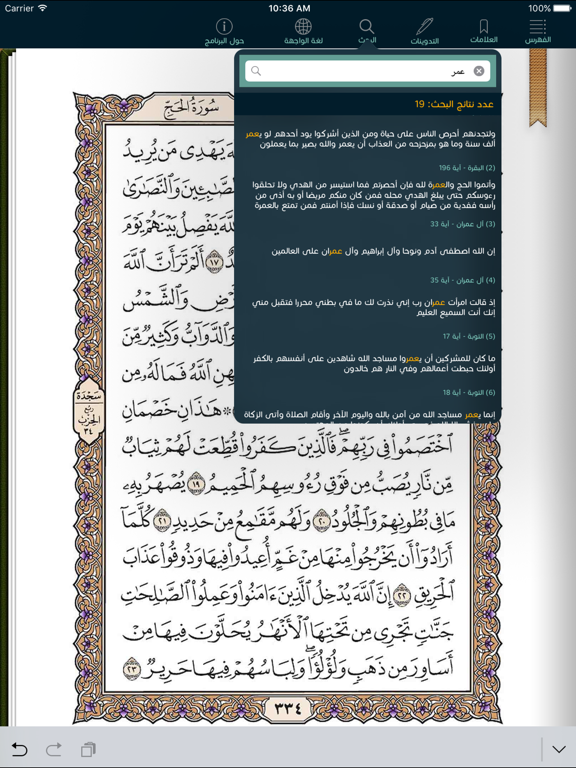 Carrier
10:36 AM
100%
الفهرس
العلامات
التدوينات
البحث
لغة الواجهة
حول البرنامج
عمر
عدد نتائج البحث: 19
ولتجدنهم أحرص الناس على حياة ومن الذين أشركوا يود أحدهم لو يعمر
ألف سنة وما هو بمزحزحه من العذاب أن يعمر والله بصير بما يعملون
(2) البقرة - آية 196
وأتموا الحج والعمرة لله فإن أحصرتم فما استيسر من الهدي ولا تحلقوا
رءوسكم حتى يبلغ الهدي محله فمن كان منكم مريضا أو به أذى من
رأسه ففدية من صيام أو صدقة أو نسك فإذا أمنتم فمن تمتع بالعمرة
(3) آل عمران - آية 33
إن الله اصطفى آدم ونوحا وآل إبراهيم وآل عمران على العالمين
(4) آل عمران - آية 35
إذ قالت امرأت عمران رب إني نذرت لك ما في بطني محررا فتقبل مني
إنك أنت السميع العليم
(5) التوبة - آية 17
ما كان للمشركين أن يعمروا مساجد الله شاهدين على أنفسهم بالكفر
أولئك حبطت أعمالهم وفي النار هم خالدون
(6) التوبة - آية 18
إنما يعمر مساجد الله من آمن بالله واليوم الآخر وأقام الصلاة وآتى الزكاة
سُورَةُ الحَجِّ
يَهْدِى مَن يُرِيدُ
وَٱلصَّٰبِـِٔينَ وَٱلنَّصَٰرَىٰ
ٱللَّهَ يَفْصِلُ بَيْنَهُمْ يَوْمَ
١٧ أَلَمْ تَرَ أَنَّ ٱللَّهَ
وَٱلشَّمْسُ
وَٱلدَّوَآبُّ وَكَثِيرٌ مِّنَ
ٱللَّهُ فَمَا لَهُۥ مِن
هَٰذَانِ خَصْمَانِ
سَجْدَة
ربع
الحزب
٣٤
ٱخْتَصَمُوا۟ فِى رَبِّهِمْ ۖ فَٱلَّذِينَ كَفَرُوا۟ قُطِّعَتْ لَهُمْ ثِيَابٌ
مِّن نَّارٍ يُصَبُّ مِن فَوْقِ رُءُوسِهِمُ ٱلْحَمِيمُ ١٩ يُصْهَرُ بِهِۦ
مَا فِى بُطُونِهِمْ وَٱلْجُلُودُ ٢٠ وَلَهُم مَّقَٰمِعُ مِنْ حَدِيدٍ ٢١ كُلَّمَآ
أَرَادُوٓا۟ أَن يَخْرُجُوا۟ مِنْهَا مِنْ غَمٍّ أُعِيدُوا۟ فِيهَا وَذُوقُوا۟ عَذَابَ
ٱلْحَرِيقِ ٢٢ إِنَّ ٱللَّهَ يُدْخِلُ ٱلَّذِينَ ءَامَنُوا۟ وَعَمِلُوا۟ ٱلصَّٰلِحَٰتِ
جَنَّٰتٍ تَجْرِى مِن تَحْتِهَا ٱلْأَنْهَٰرُ يُحَلَّوْنَ فِيهَا مِنْ
أَسَاوِرَ مِن ذَهَبٍ وَلُؤْلُؤًا ۖ وَلِبَاسُهُمْ فِيهَا حَرِيرٌ ٢٣
٣٣٤